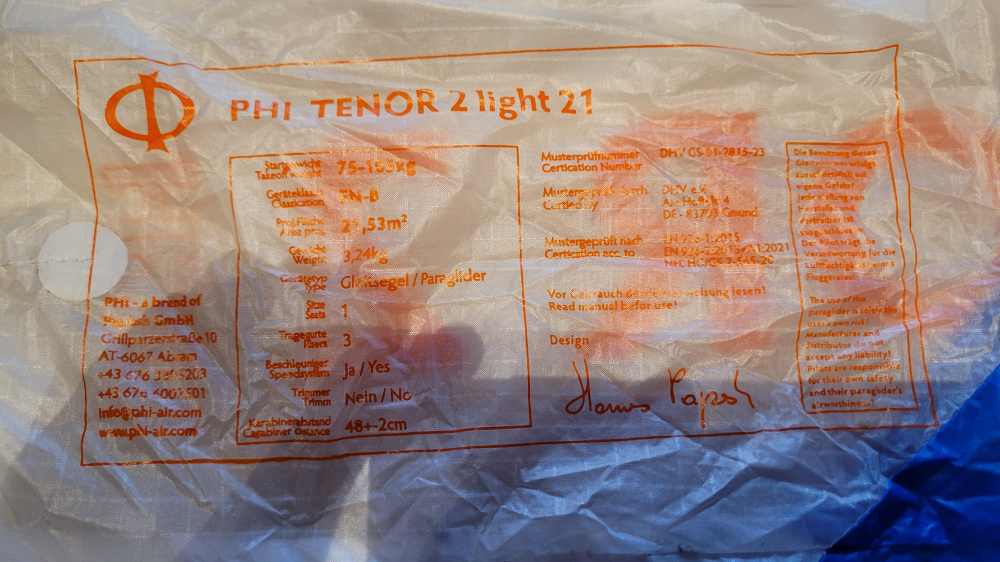 PHI TENOR 2 light 21
Startgewicht
Takeoff weight
75-105kg
Geräteklasse
Classication
EN-B
Proj. Fläche
Area proj.
21,53m²
Gewicht
Weight
3,24kg
Gerätetyp
Type
Gleitsegel / Paraglider
Sitze
Seats
1
Tragegurte
Risers
3
Beschleuniger
Speedsystem
Ja / Yes
Trimmer
Trimm
Nein / No
Karabinerabstand
Carabiner distance
48+-2cm
PHI - a brand of
Papesh GmbH
Grillparzerstraße 10
AT-6067 Absam
+43 676
+43 676
info@phi-air.com
www.phi-air.com
Musterprüfnummer
Certication Number
DHV GS-01-2815-23
Mustergeprüft durch
Certied by
DHV e.V.
Am Hoffeld 4
DE - 83703 Gmund
Mustergeprüft nach
Certication acc. to
EN 926-1:2015
EN 926-2:2013+A1:2021
Vor Gebrauch Betriebsanweisung lesen!
Read manual befor use!
Design
Hannes Papesh
Die Benutzung dieses
Gleitsegels erfolgt
ausschliesslich auf
eigene Gefahr!
Jede Haftung von
Hersteller und
Vertreiber ist
ausgeschlossen.
Der Pilot trägt die
Verantwortung für die
Lufttüchtigkeit seines
Fluggerätes!
The use of this
paraglider is solely the
user's own risk!
Manufacturer and
distributor do not
accept any liability!
Pilots are responsible
for their own safety
and their paraglider's
airworthiness!